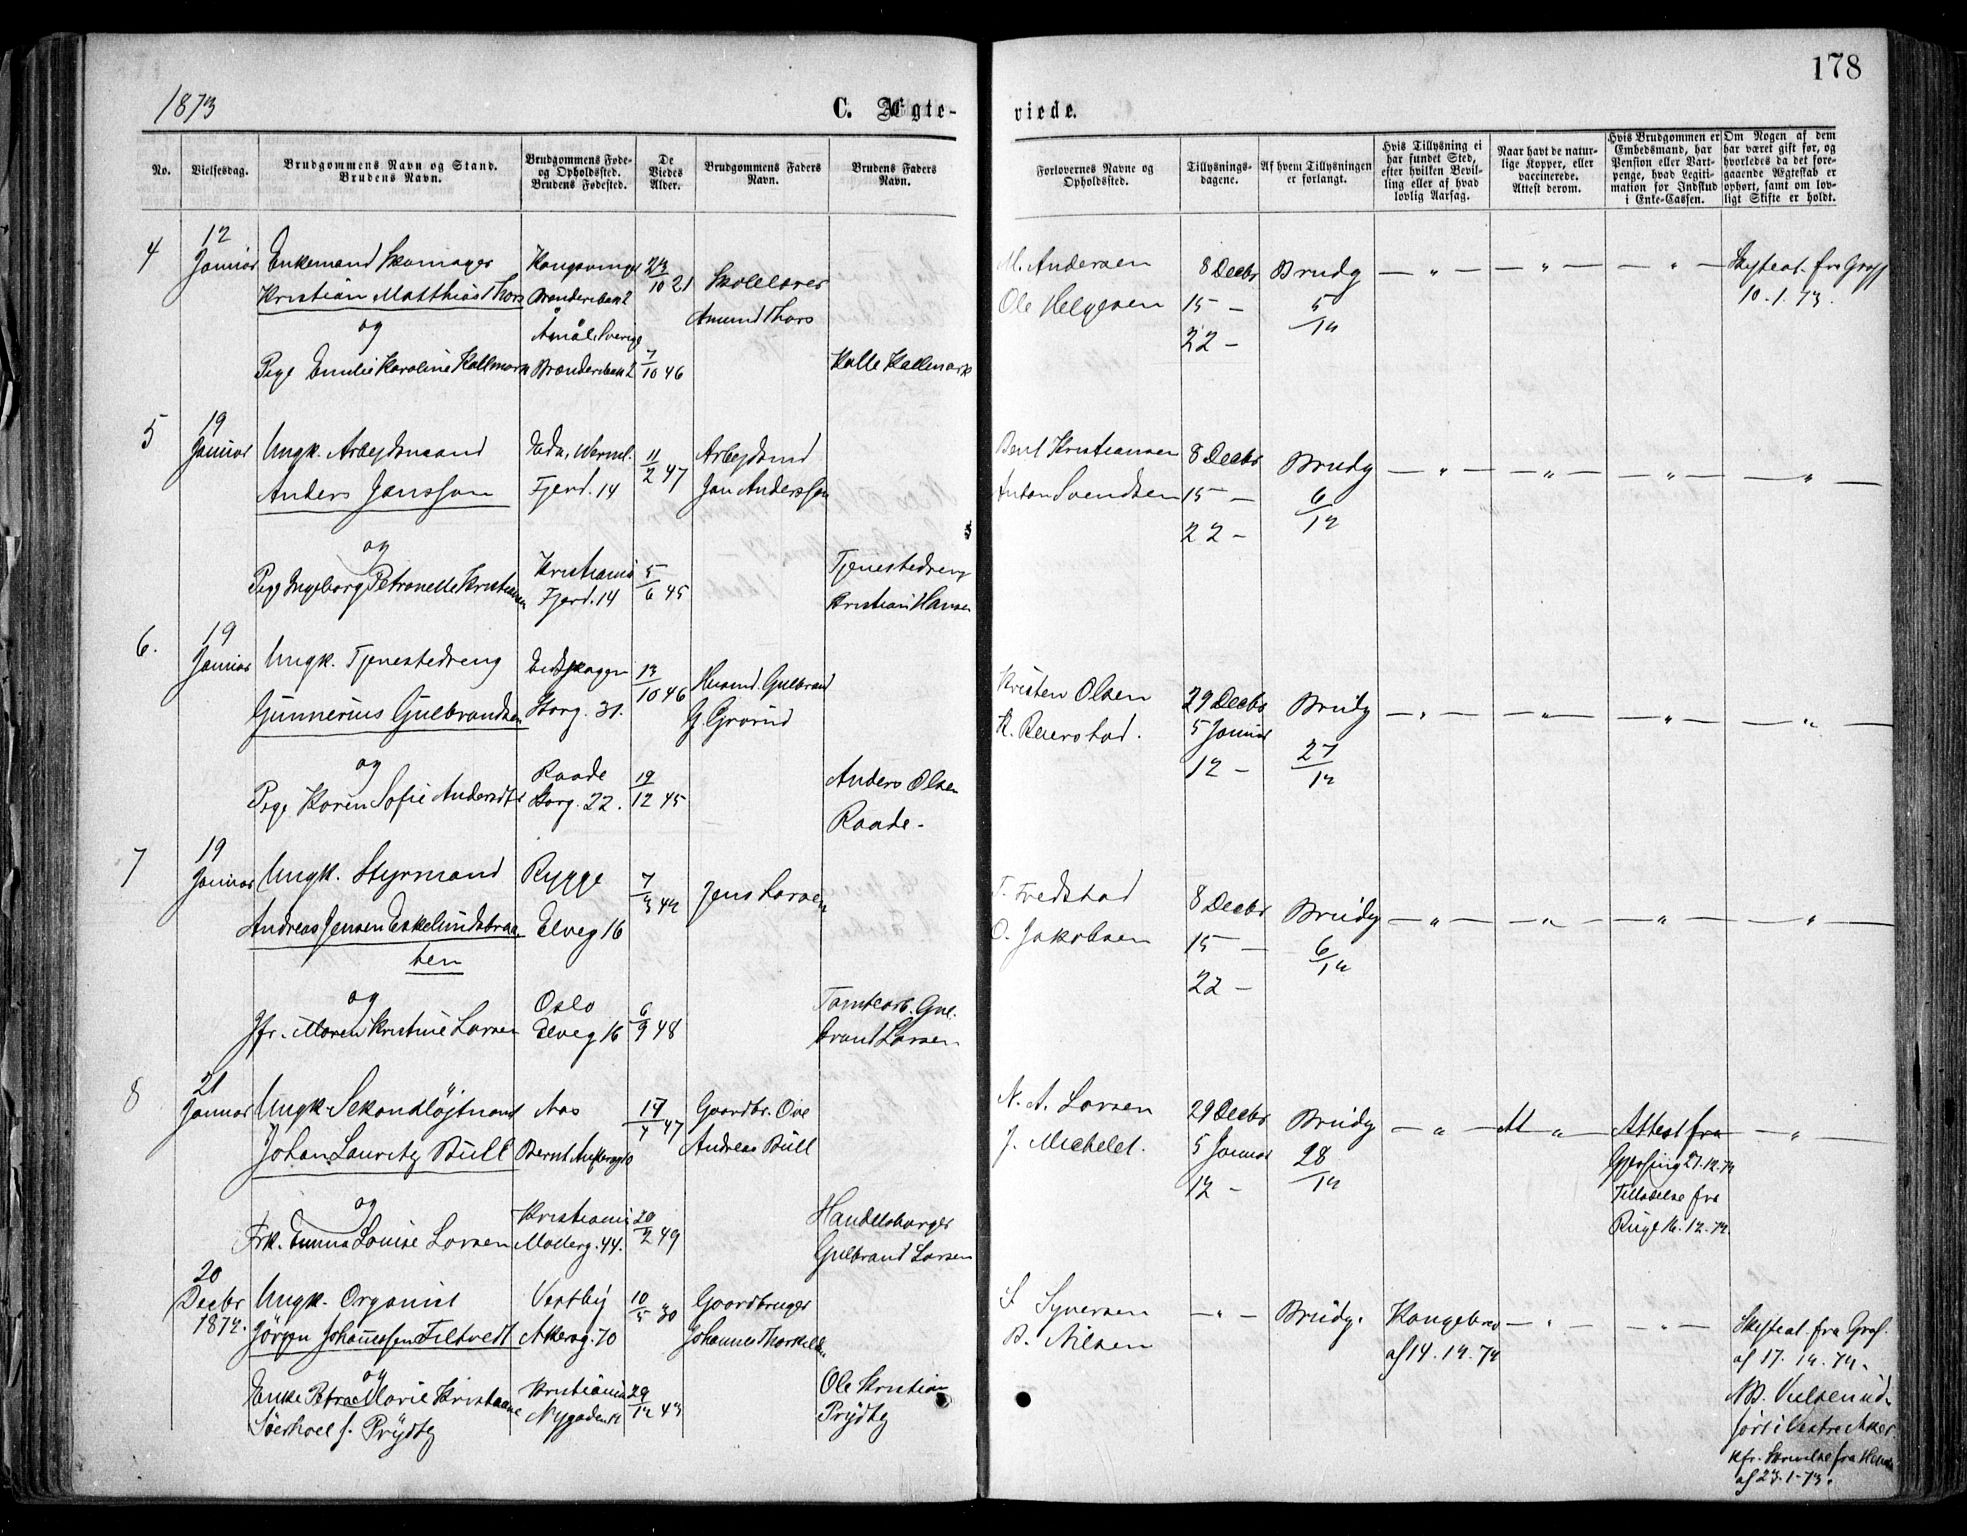 178
1873
C. Ægte-
viede.
No.
Vielsesdag.
Brudgommens Navn og Stand.
Brudens Navn.
Brudgommens Føde-
og Opholdssted.
Brudens Fødested.
De
Viedes
Alder.
Brudgommens Faders
Navn.
Brudens Faders
Navn.
Forlovernes Navne og
Opholdssted.
Tillysnings-
dagene.
Af hvem Tillysningen
er forlangt.
Hvis Tillysning ei
har fundet Sted,
efter hvilken Bevil-
ling eller af hvad
lovlig Aarsag.
Naar havt de natur-
lige Kopper, eller
vaccinerede.
Attest derom.
Hvis Brudgommen er
Embedsmand, har
Pension eller Vart-
penge, hvad Legiti-
mation for Indskud
i Enke-Cassen.
Om Nogen af dem
har været gift før, og
hvorledes da det fore-
gaaende Ægteskab er
ophørt, samt om lov-
ligt Skifte er holdt.
4
12
Januar
Enkemand Skomager
Kristian Matthias Thors
og
Pige Emilie Karoline Kallmark
Kongsvinger
Åmål, Sverige
23/10 21
7/10 46
Skolelærer
Amund Thors
Kalle Kallmark
M. Andersen
Ole Helgesen
8 Decbr
15 —
22 —
Brudg
5/12
— " —
— " —
— " —
Skifteat. fra
10-1-73.
5
19
Januar
Ungk. Arbejdsmand
Anders Jansson
og
Pige Ingeborg Petronelle Kristiansen
Eda, Werml.
Fjerd. 14
Kristiania
Fjerd. 14
11/2 47
5/6 45
Arbejdsmd
Jan Andersson
Tjenestedreng
Kristian Hansen
Bent Kristiansen
Anton Svendsen
8 Decbr
15 —
22 —
Brudg
6/12
— " —
— " —
— " —
— " —
6.
19
Januar
Ungk. Tjenestedreng
Gunnerius Gulbrandsen
og
Pige Karen Sofie Andersdtr
Eidskogen
Storg. 31.
Raade
Storg. 22.
13/10 46
19/12 45
Husmd. Gulbrand
G. Grorud
Anders Olsen
Raade.
Kristen Olsen
K. Reierstad.
29 Decbr
5 Januar
12 —
Brudg
27/12
— " —
— " —
— " —
— " —
7
19
Januar
Ungk. Styrmand
Andreas Jensen Eskelundsbraa
ten
og
Jfr. Maren Kristine Larsen
Rygge
Elveg 16
Oslo
Elveg 16
7/3 42
6/9 48
Jens Larsen
Tomtearb. Gul.
brand Larsen
T. Fredstad
O. Jakobsen
8 Decbr
15 —
22 —
Brudg
6/12
— " —
— " —
— " —
— " —
8
21
Januar
Ungk. Sekondløjtnant
Johan Lauritz Bull
og
Frk. Emma Louise Larsen
Aas
Kristiania
Møllerg. 44.
17/4 47
20/2 49
Gaardbr. Ove
Andreas Bull
Handelsborger
Gulbrand Larsen
N. A. Larsen
J. Michelet.
29 Decbr
5 Januar
12 —
Brudg
28/12
— " —
— " —
Attest fra
27.12.72
Tilladelse fra
16.12.72.
— " —
20
Decbr
1872.
Ungk. Organist
Jörgen Johannessen Filtvedt
og
Enke Petra Marie Kristiane
f. Prydtz
Vestby
Akersg. 70
Kristiania
Nygaden 12
10/5 30
29/12 43
Gaardbruger
Johannes Thorkildsen
Ole Kristian
Prydtz
S. Syversen
B. Nilsen
— " —
Brudg.
Kongebrev
af 14.12.72
— " —
— " —
Skifteat. fra
af 17.12.72.
NB. Vielsen ud-
ført i Vestre Aker
kfr. Skrivelse fra
af 23.1.73.